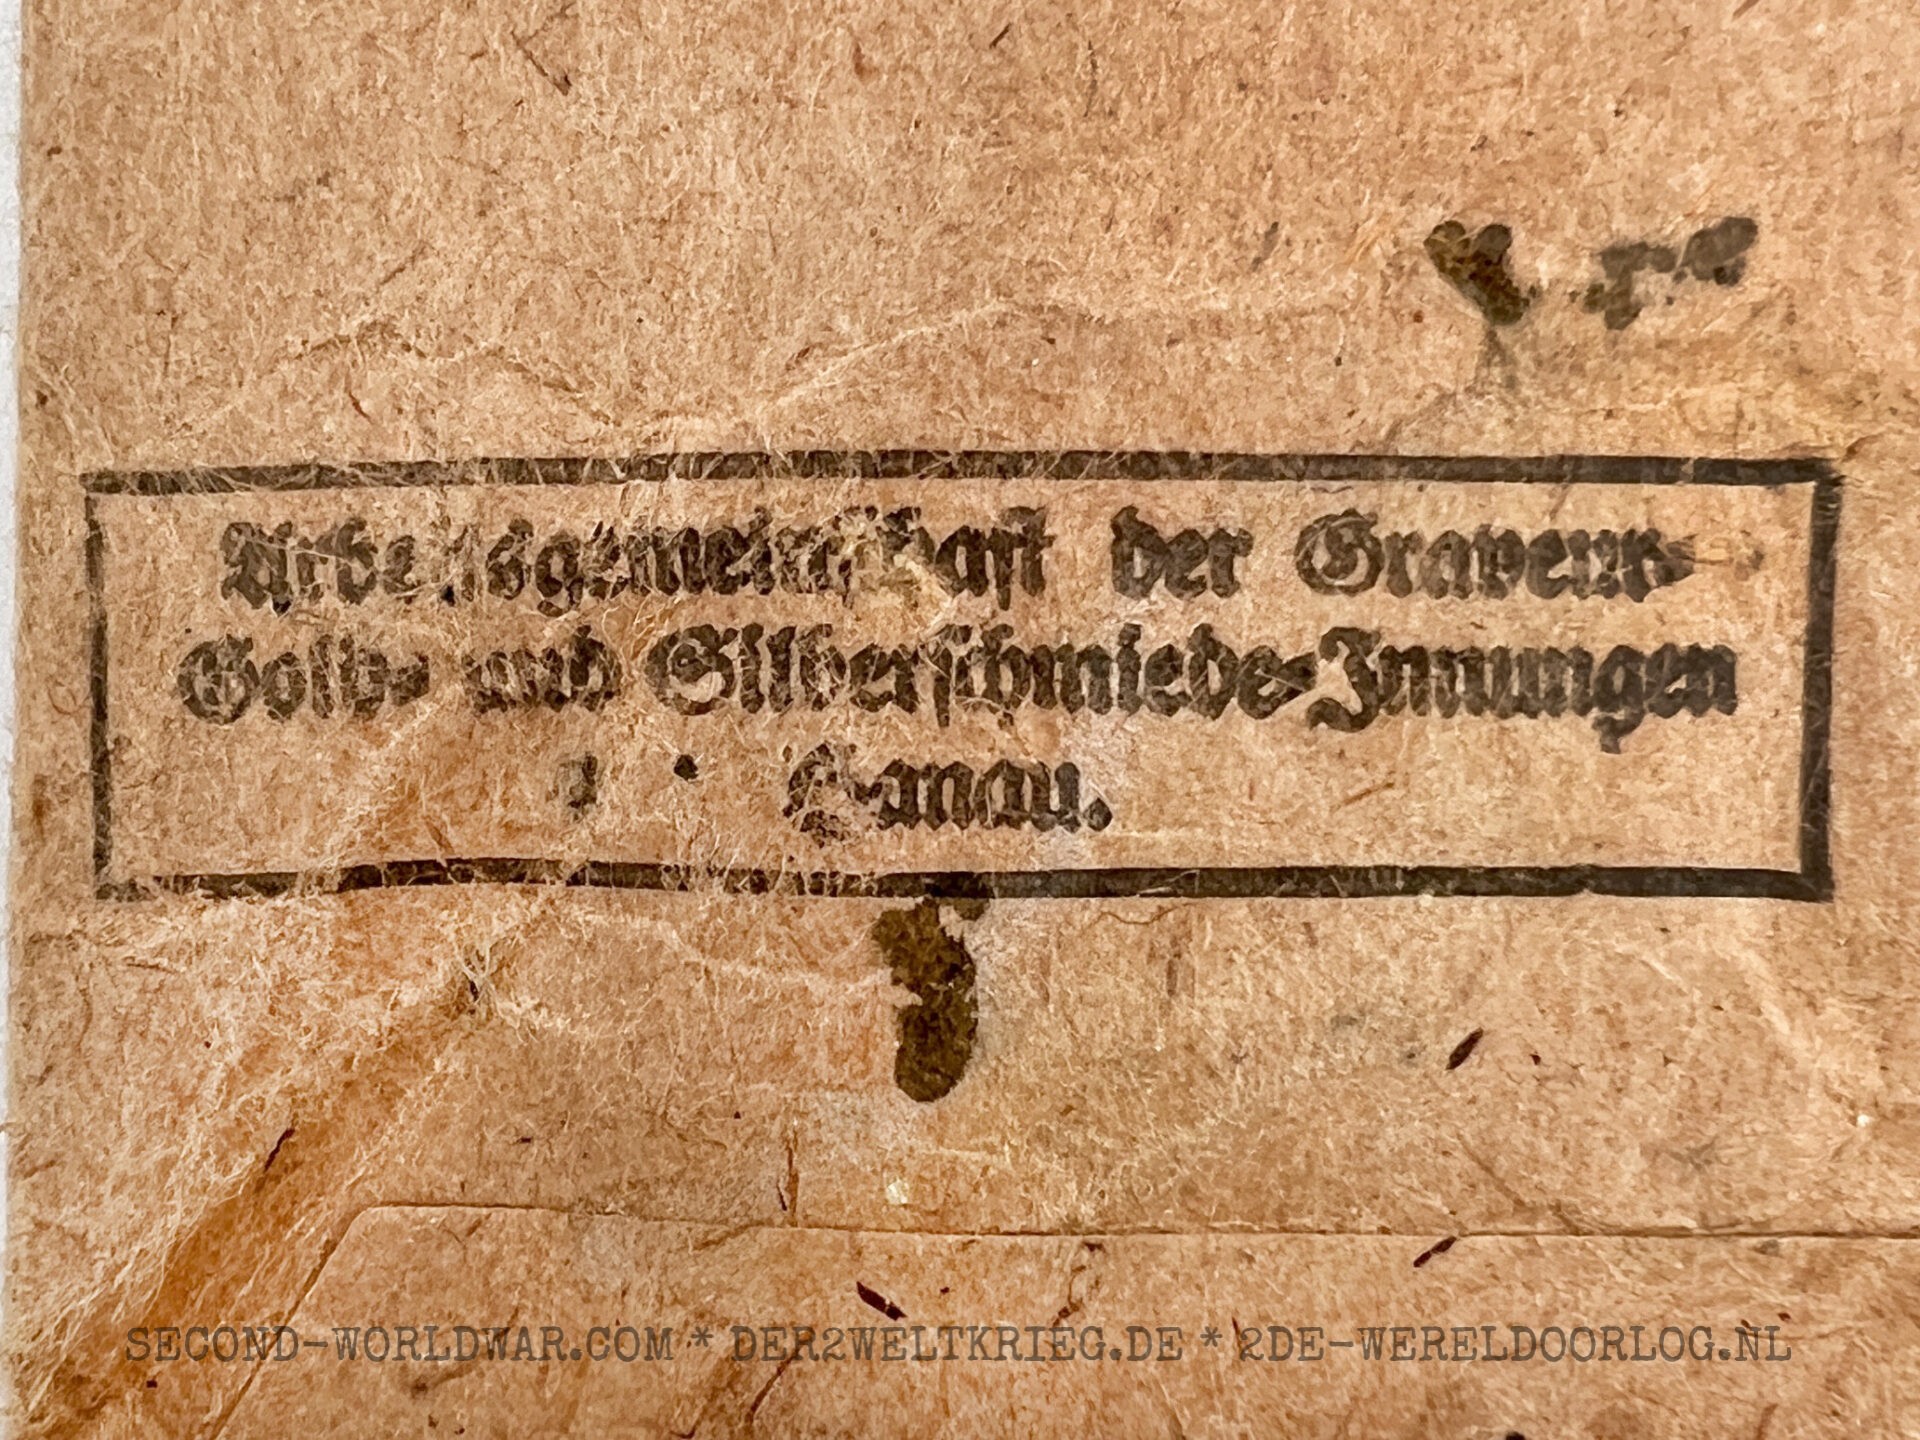 Arbeitsgemeinschaft der Graveur-
Gold- und Silberschmiede-Innungen
Hanau.
SECOND-WORLDWAR.COM * DER2WELTKRIEG.DE * 2DE-WERELDOORLOG.NL